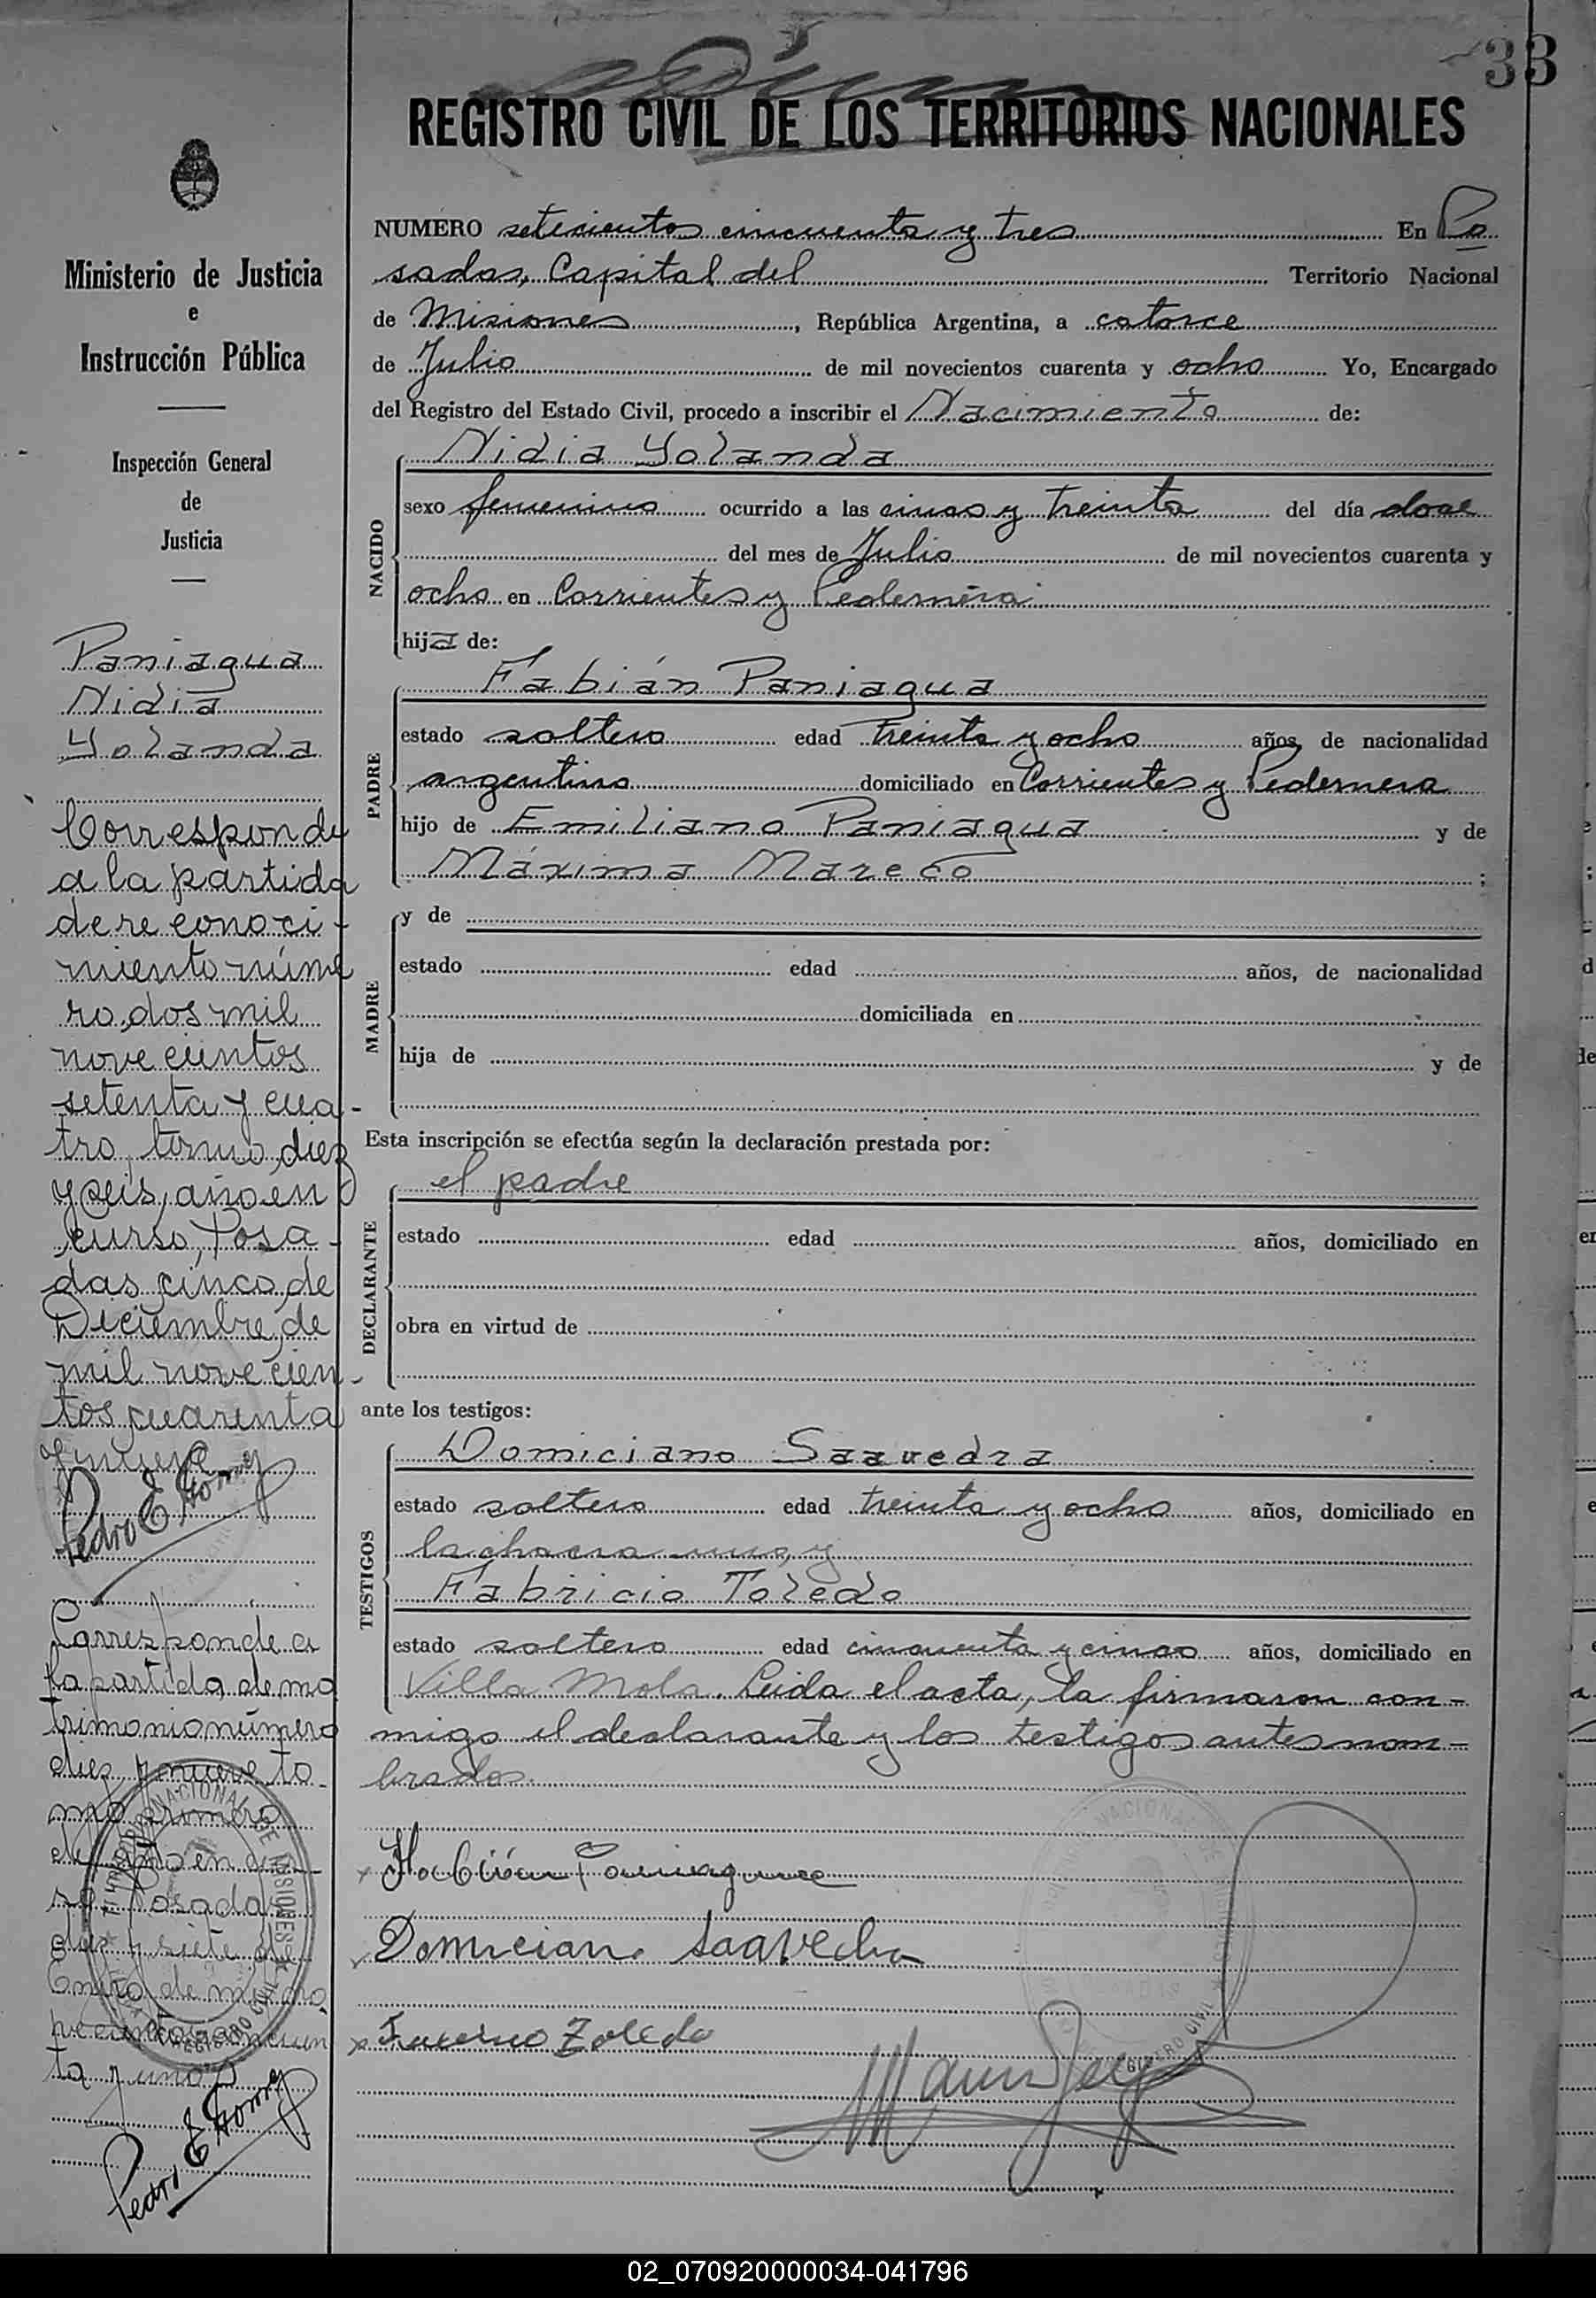 33
REGISTRO CIVIL DE LOS TERRITORIOS NACIONALES
Ministerio de Justicia
e
Instrucción Pública
Inspección General
de
Justicia
Paniagua
Nidia
Yolanda
Corresponde
a la partida
de reconoci-
miento núme
ro dos mil
novecientos
setenta y cua-
tro, tomo diez
y seis, año en
curso, Posa-
das, cinco de
Diciembre de
mil novecien-
tos cuarenta
y nueve
Pedro E
Corresponde a
la partida de ma
trimonio número
diez y nueve to-
mo primero
del año en cur-
so Posadas
diez y siete de
Enero de mil no
vecientos cincuen
ta y uno
Pedro E
NUMERO setecientos cincuenta y tres En Po
sadas, Capital del Territorio Nacional
de Misiones, República Argentina, a catorce
de Julio de mil novecientos cuarenta y ocho Yo, Encargado
del Registro del Estado Civil, procedo a inscribir el Nacimiento de:
NACIDO
Nidia Yolanda
sexo femenino ocurrido a las cinco y treinta del día doce
del mes de Julio de mil novecientos cuarenta y
ocho en Corrientes y Pedernera
hija de:
PADRE
Fabián Paniagua
estado soltero edad treinta y ocho años, de nacionalidad
argentino domiciliado en Corrientes y Pedernera
hijo de Emiliano Paniagua y de
Máxima Mareco ;
MADRE
y de
estado edad años, de nacionalidad
domiciliada en
hija de y de
Esta inscripción se efectúa según la declaración prestada por:
DECLARANTE
el padre
estado edad años, domiciliado en
obra en virtud de
ante los testigos:
TESTIGOS
Domiciano Saavedra
estado soltero edad treinta y ocho años, domiciliado en
la chacra uno, y
Fabricio Toledo
estado soltero edad cincuenta y cinco años, domiciliado en
Villa Mola. Leida el acta, la firmaron con-
migo el declarante y los testigos antes nom-
brados.
Fabián Paniagua
Domiciano Saavedra
Toledo
REGISTRO CIVIL
02_070920000034-041796